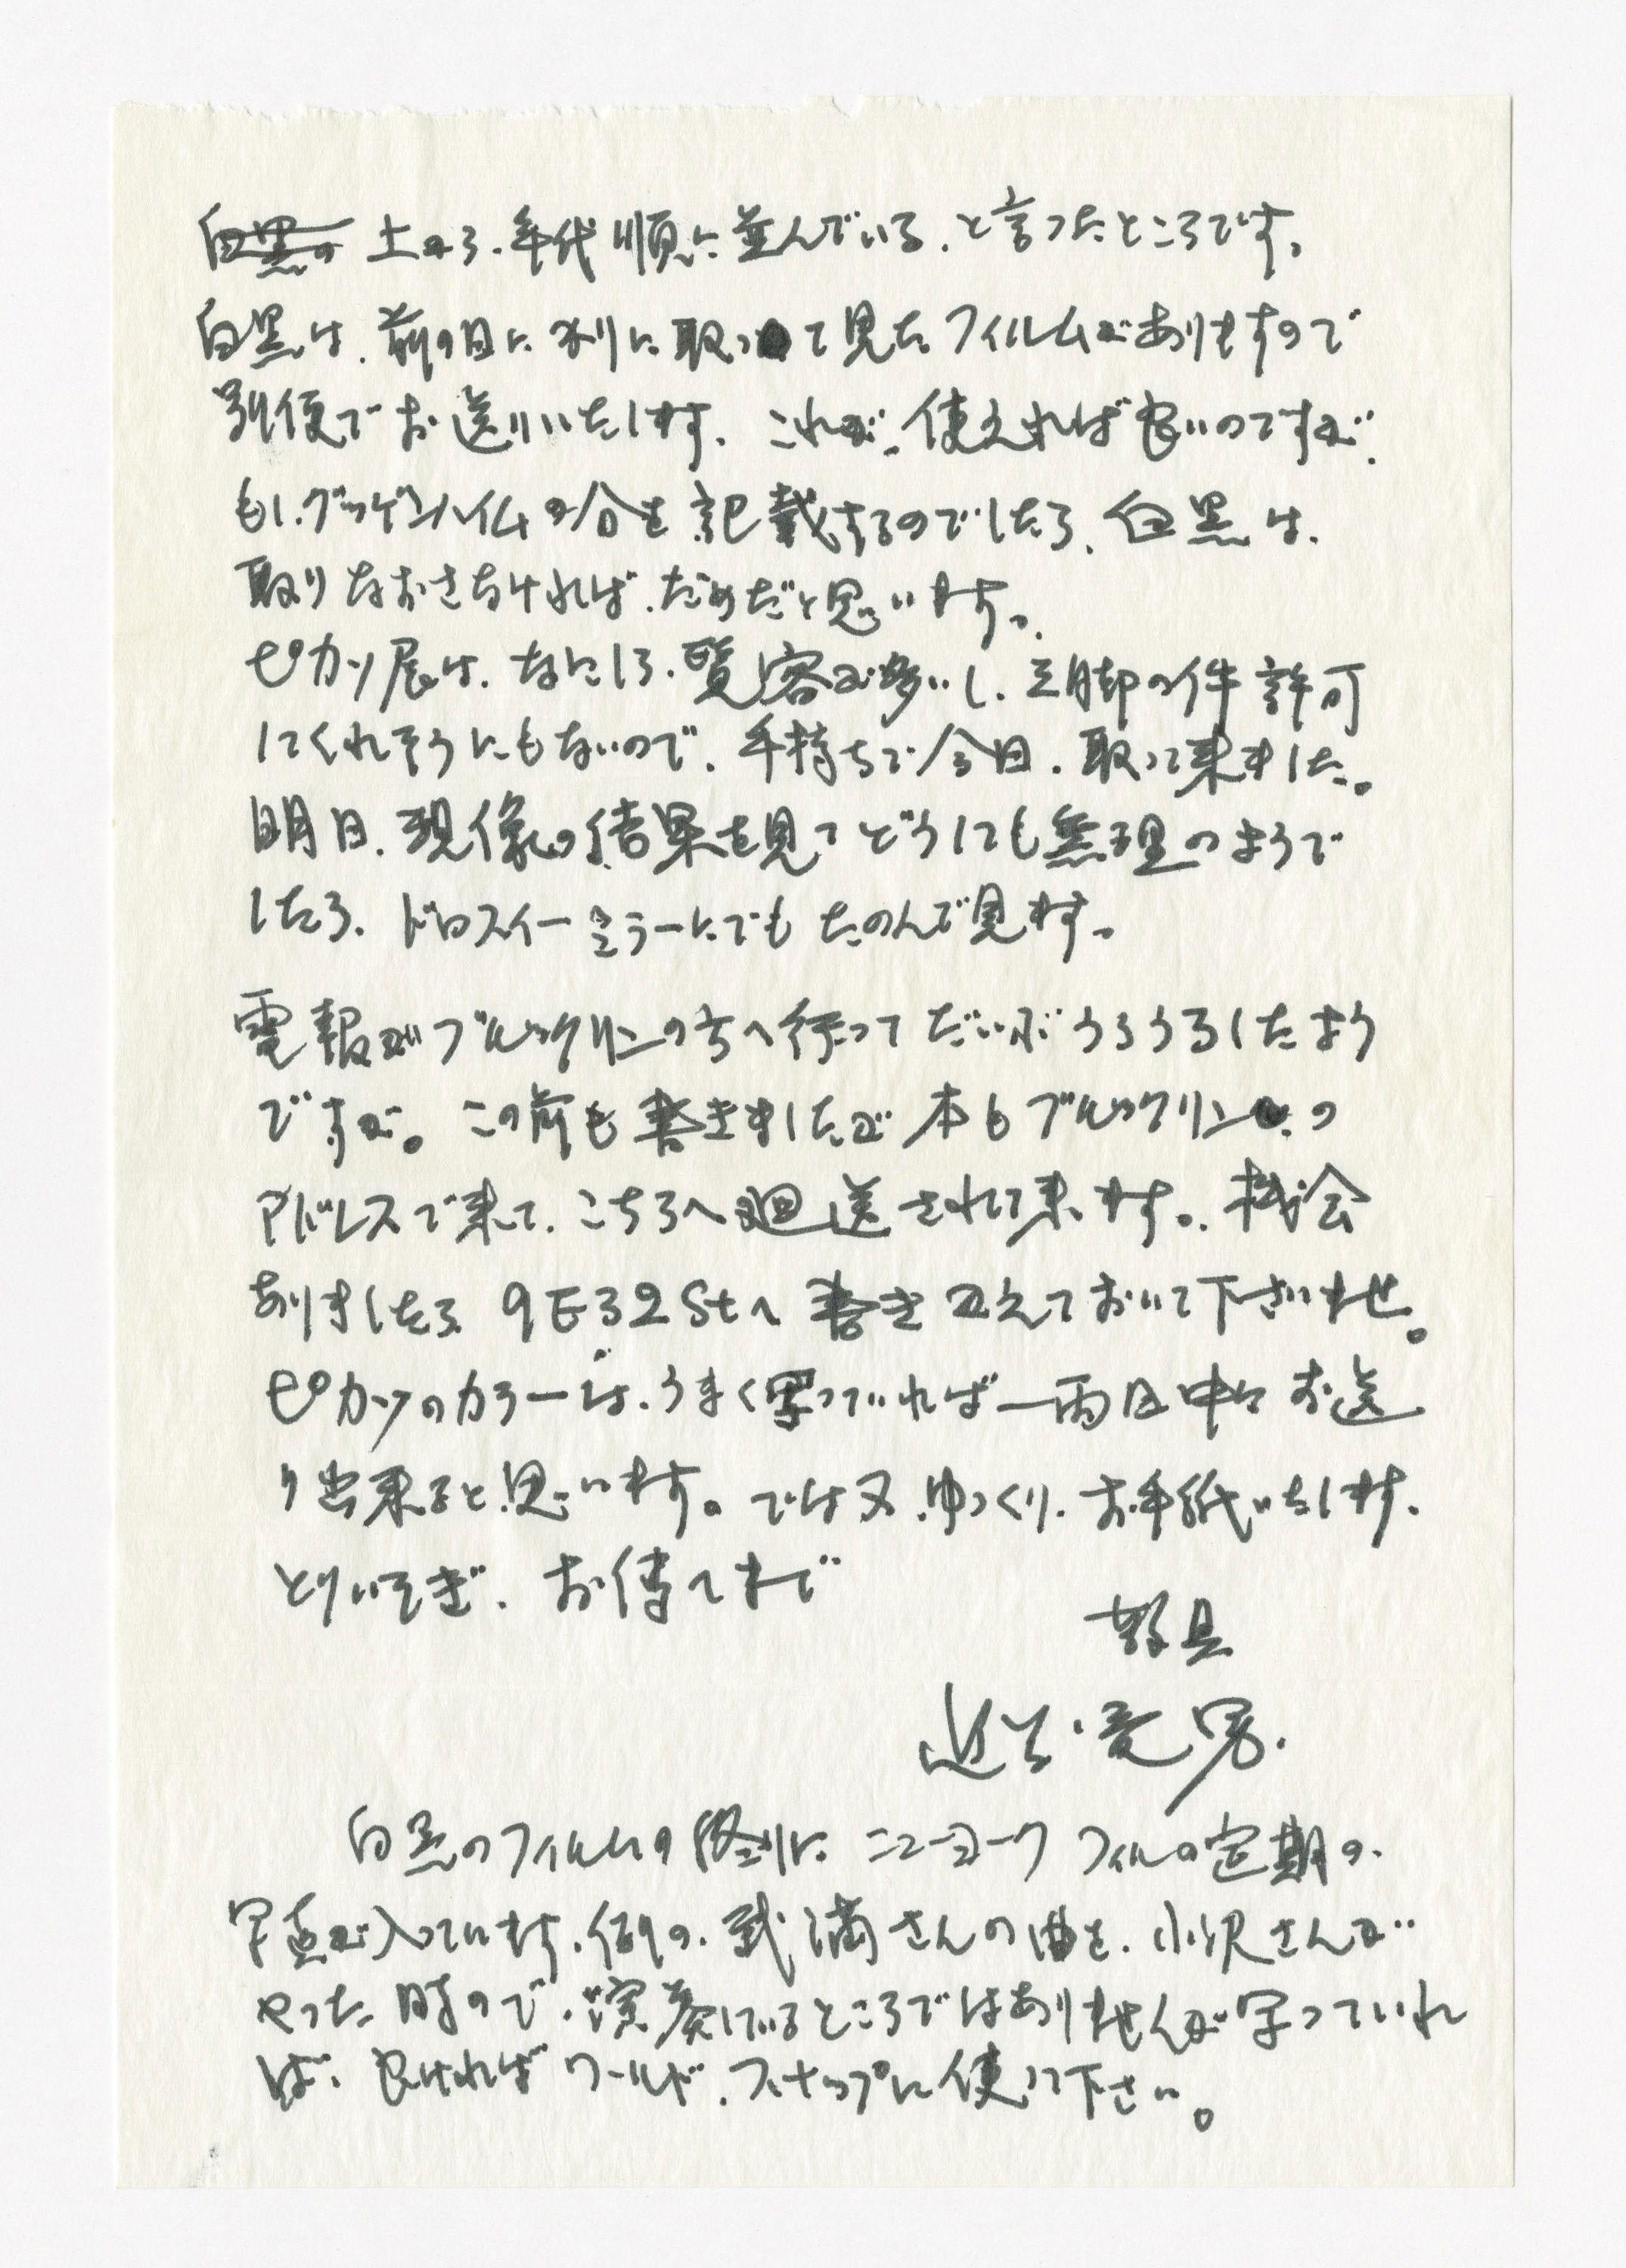 上から、年代順に並んでいる、と言ったところです。
白黒は、前の日に別に取って見たフィルムがありますので
別便でお送りいたします、これが、使えれば良いのですが、
もし、グッゲンハイムの分を記載するのでしたら、白黒は、
取りなおさなければ、だめだと思います。
ピカソ展は、なにしろ、覧客が多いし、三脚の件許可
してくれそうにもないので、手持ちで今日、取って来ました。
明日、現像の結果を見てどうしても無理のようで
したら、ドロスィーミラーにでもたのんで見ます。
電報がブルックリンの方へ行ってだいぶうろうろしたよう
ですが。この前も書きましたが本もブルックリンの
アドレスで来て、こちらへ廻送されて来ます。機会
ありましたら 9E32Stへ書き変えておいて下さいませ。
ピカソのカラーは、うまく写っていれば一両日中にお送
り出来ると思います。では又、ゆっくり、お手紙いたします、
とりいそぎ、お傳へまで
敬具
近藤・竜男.
白黒のフィルムの終りに ニューヨークフィルの定期の、
写真が入っています、例の、武満さんの曲を、小沢さんが
やった時ので、演奏しているところではありませんが写っていれ
ば、良ければワールド、スナップに使って下さい。